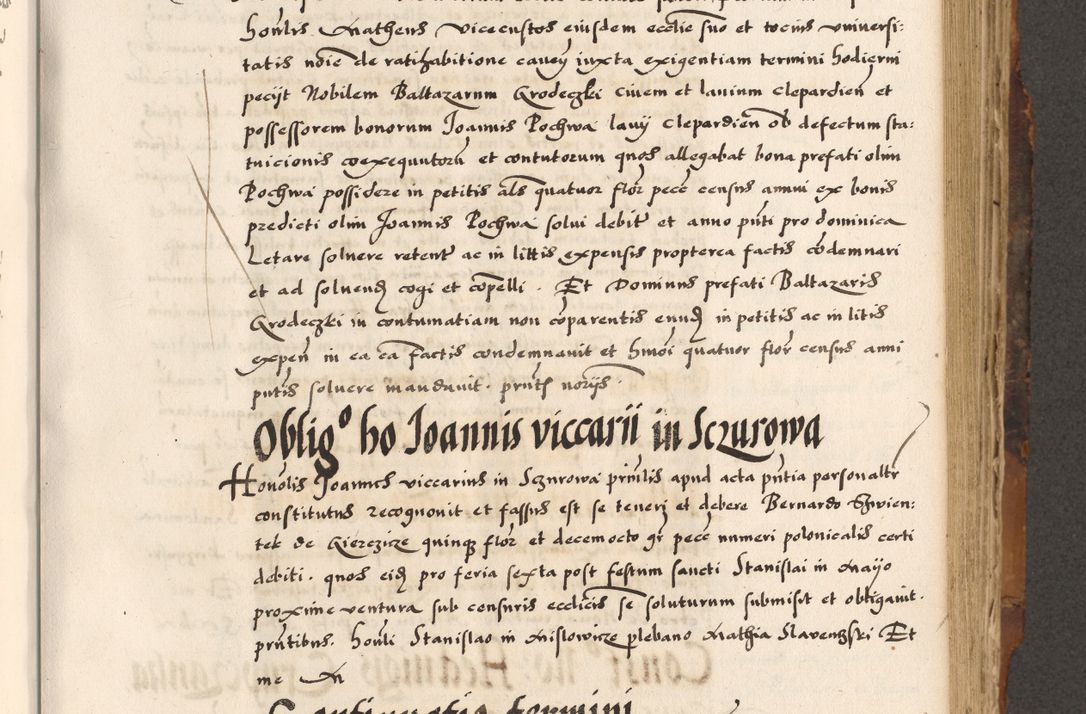 honlis Matheus viceustos eiusdem ecclie suo et tocius universi:
tatis noie de ratihabitione cavey iuxta exigentiam termini hodierni
pecijt Nobilem Baltazarum Grodeczki civem et lanium Clepardien et
possessorem bonorum Joannis Pochwa lanij Clepardien ob defectum sta:
tuicionis coexequutorū et contutorum quos allegabat bona prefati olim
Pochwa possidere in petitis als quatuor flor pecc census annui ex bonis
predicti olim Joannis Pochwa solui debit et anno pnti pro dominica
Letare solvere retent ac in littis expensis propterea factis cōdemnari
et ad solvend cogi et cōpelli . Et Dominus prefati Baltazaris
Grodeczki in contumatiam non cōparentis eund in petitis ac in litis
expen in ea ca factis condemnavit et hmōi quatuor flor census anni
pntis solvere mandavit . pntf norijs .
Oblig° ho Joannis viccarii in Sczurowa
Honolis Joannes viccarius in Sczurowa prinlis apud acta pntia personaltr
constitutus recognovit et fassus est se teneri et debere Bernardo Swien:
tek de Gierczize quinq flor et decemocto gr pecc numeri polonicalis certi
debiti . quos eid pro feria sexta post festum sancti Stanislai in Maijo
proxime ventura sub censuris ecclicis se soluturum submisit et obligavit .
pntibus . honli Stanislao in Mislowize plebano Mathia Slavenczski Et
me